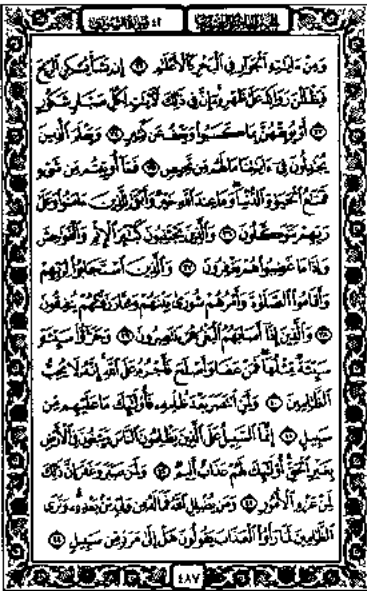 الجزء الخامس والعشرون
٤٢ سورة الشورى
وَمِنْ ءَايَٰتِهِ ٱلْجَوَارِ فِى ٱلْبَحْرِ كَٱلْأَعْلَٰمِ ٣٢ إِن يَشَأْ يُسْكِنِ ٱلرِّيحَ
فَيَظْلَلْنَ رَوَاكِدَ عَلَىٰ ظَهْرِهِۦٓ إِنَّ فِى ذَٰلِكَ لَءَايَٰتٍ لِّكُلِّ صَبَّارٍ شَكُورٍ
٣٣ أَوْ يُوبِقْهُنَّ بِمَا كَسَبُوا۟ وَيَعْفُ عَن كَثِيرٍ ٣٤ وَيَعْلَمَ ٱلَّذِينَ
يُجَٰدِلُونَ فِىٓ ءَايَٰتِنَا مَا لَهُم مِّن مَّحِيصٍ ٣٥ فَمَآ أُوتِيتُم مِّن شَىْءٍ
فَمَتَٰعُ ٱلْحَيَوٰةِ ٱلدُّنْيَا وَمَا عِندَ ٱللَّهِ خَيْرٌ وَأَبْقَىٰ لِلَّذِينَ ءَامَنُوا۟ وَعَلَىٰ
رَبِّهِمْ يَتَوَكَّلُونَ ٣٦ وَٱلَّذِينَ يَجْتَنِبُونَ كَبَٰٓئِرَ ٱلْإِثْمِ وَٱلْفَوَٰحِشَ
وَإِذَا مَا غَضِبُوا۟ هُمْ يَغْفِرُونَ ٣٧ وَٱلَّذِينَ ٱسْتَجَابُوا۟ لِرَبِّهِمْ
وَأَقَامُوا۟ ٱلصَّلَوٰةَ وَأَمْرُهُمْ شُورَىٰ بَيْنَهُمْ وَمِمَّا رَزَقْنَٰهُمْ يُنفِقُونَ
٣٨ وَٱلَّذِينَ إِذَآ أَصَابَهُمُ ٱلْبَغْىُ هُمْ يَنتَصِرُونَ ٣٩ وَجَزَٰٓؤُا۟ سَيِّئَةٍ
سَيِّئَةٌ مِّثْلُهَا فَمَنْ عَفَا وَأَصْلَحَ فَأَجْرُهُۥ عَلَى ٱللَّهِ إِنَّهُۥ لَا يُحِبُّ
ٱلظَّٰلِمِينَ ٤٠ وَلَمَنِ ٱنتَصَرَ بَعْدَ ظُلْمِهِۦ فَأُو۟لَٰٓئِكَ مَا عَلَيْهِم مِّن
سَبِيلٍ ٤١ إِنَّمَا ٱلسَّبِيلُ عَلَى ٱلَّذِينَ يَظْلِمُونَ ٱلنَّاسَ وَيَبْغُونَ فِى ٱلْأَرْضِ
بِغَيْرِ ٱلْحَقِّ أُو۟لَٰٓئِكَ لَهُمْ عَذَابٌ أَلِيمٌ ٤٢ وَلَمَن صَبَرَ وَغَفَرَ إِنَّ ذَٰلِكَ
لَمِنْ عَزْمِ ٱلْأُمُورِ ٤٣ وَمَن يُضْلِلِ ٱللَّهُ فَمَا لَهُۥ مِن وَلِىٍّ مِّنۢ بَعْدِهِۦ وَتَرَى
ٱلظَّٰلِمِينَ لَمَّا رَأَوُا۟ ٱلْعَذَابَ يَقُولُونَ هَلْ إِلَىٰ مَرَدٍّ مِّن سَبِيلٍ ٤٤
٤٨٧